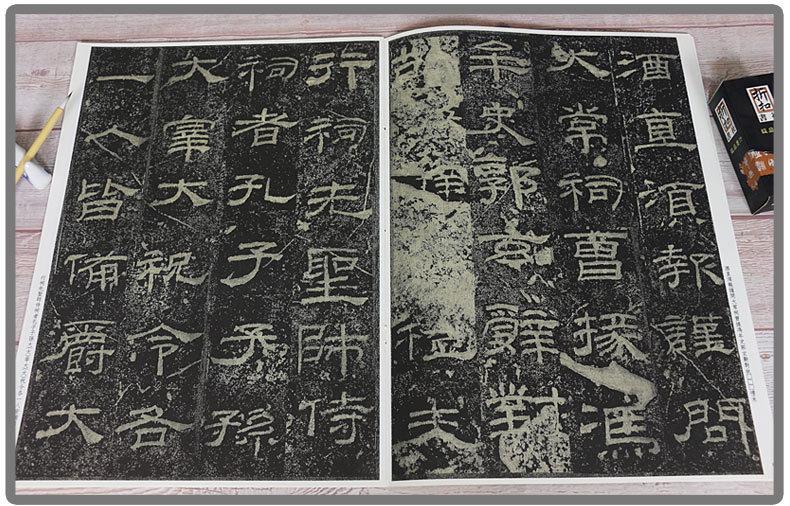 酒直須報謹問
大常祠曹掾馮
牟史郭玄辭對
雍礼未
行祠先聖師侍
祠者孔子子孫
大宰大祝令各
一人皆備爵大